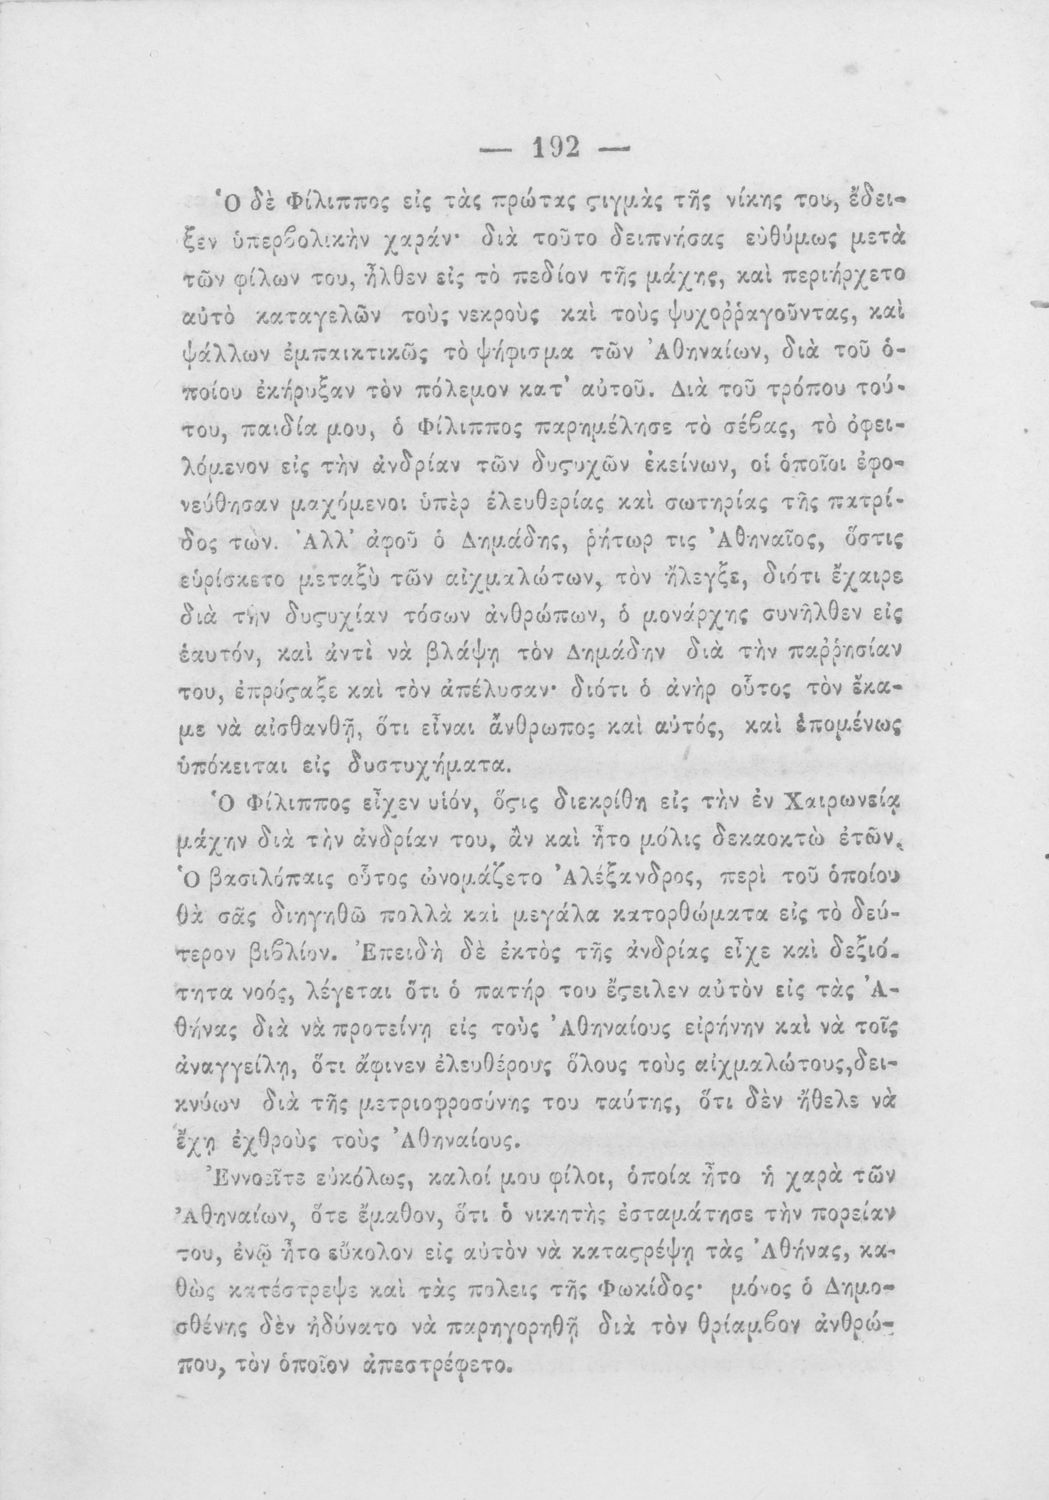 — 192 —
Ὁ δὲ Φίλιππος εἰς τὰς πρώτας ϛιγμὰς τῆς νίκης του, ἔδει-
ξεν ὑπερβολικὴν χαράν· διὰ τοῦτο δειπνήσας εὐθύμως μετὰ
τῶν φίλων του, ἦλθεν εἰς τὸ πεδίον τῆς μάχης, καὶ περιήρχετο
αὐτὸ καταγελῶν τοὺς νεκροὺς καὶ τοὺς ψυχοῤῥαγοῦντας, καὶ
ψάλλων ἐμπαικτικῶς τὸ ψήφισμα τῶν Ἀθηναίων, διὰ τοῦ ὁ-
ποίου ἐκήρυξαν τὸν πόλεμον κατ’ αὐτοῦ. Διὰ τοῦ τρόπου τού-
του, παιδία μου, ὁ Φίλιππος παρημέλησε τὸ σέβας, τὸ ὀφει-
λόμενον εἰς τὴν ἀνδρίαν τῶν δυϛυχῶν ἐκείνων, οἱ ὁποῖοι ἐφο-
νεύθησαν μαχόμενοι ὑπὲρ ἐλευθερίας καὶ σωτηρίας τῆς πατρί-
δος τὼν. Ἀλλ’ ἀφοῦ ὁ Δημάδης, ῥήτωρ τις Ἀθηναῖος, ὅστις
εὑρίσκετο μεταξὺ τῶν αἰχμαλώτων, τὸν ἤλεγξε, διότι ἔχαιρε
διὰ τὴν δυϛυχίαν τόσων ἀνθρώπων, ὁ μονάρχης συνῆλθεν εἰς
ἑαυτόν, καὶ ἀντὶ νὰ βλάψῃ τὸν Δημάδην διὰ τὴν παῤῥησίαν
του, ἐπρόϛαξε καὶ τὸν ἀπέλυσαν· διότι ὁ ἀνὴρ οὗτος τὸν ἔκα-
με νὰ αἰσθανθῇ, ὅτι εἶναι ἄνθρωπος καὶ αὐτός, καὶ ἑπομένως
ὑπόκειται εἰς δυστυχήματα.
Ὁ Φίλιππος εἶχεν υἱόν, ὅϛις διεκρίθη εἰς τὴν ἐν Χαιρωνείᾳ
μάχην διὰ τὴν ἀνδρίαν του, ἂν καὶ ἦτο μόλις δεκαοκτὼ ἐτῶν.
Ὁ βασιλόπαις οὗτος ὠνομάζετο Ἀλέξανδρος, περὶ τοῦ ὁποίου
θὰ σᾶς διηγηθῶ πολλὰ καὶ μεγάλα κατορθώματα εἰς τὸ δεύ-
τερον βιβλίον. Ἐπειδὴ δὲ ἐκτὸς τῆς ἀνδρίας εἶχε καὶ δεξιό-
τητα νοός, λέγεται ὅτι ὁ πατήρ του ἔϛειλεν αὐτὸν εἰς τὰς Ἀ-
θήνας διὰ νὰ προτείνῃ εἰς τοὺς Ἀθηναίους εἰρήνην καὶ νὰ τοῖς
ἀναγγείλῃ, ὅτι ἄφινεν ἐλευθέρους ὅλους τοὺς αἰχμαλώτους,δει-
κνύων διὰ τῆς μετριοφροσύνης του ταύτης, ὅτι δὲν ἤθελε νὰ
ἔχῃ ἐχθροὺς τοὺς Ἀθηναίους.
Ἐννοεῖτε εὐκόλως, καλοί μου φίλοι, ὁποία ἦτο ἡ χαρὰ τῶν
Ἀθηναίων, ὅτε ἔμαθον, ὅτι ὁ νικητὴς ἐσταμάτησε τὴν πορείαν
του, ἐνῷ ἦτο εὔκολον εἰς αὐτὸν νὰ καταϛρέψῃ τὰς Ἀθήνας, κα-
θὼς κατέστρεψε καὶ τὰς πολεις τῆς Φωκίδος· μόνος ὁ Δημο-
σθένης δὲν ἠδύνατο νὰ παρηγορηθῇ διὰ τὸν θρίαμβον ἀνθρώ-
που, τὸν ὁποῖον ἀπεστρέφετο.